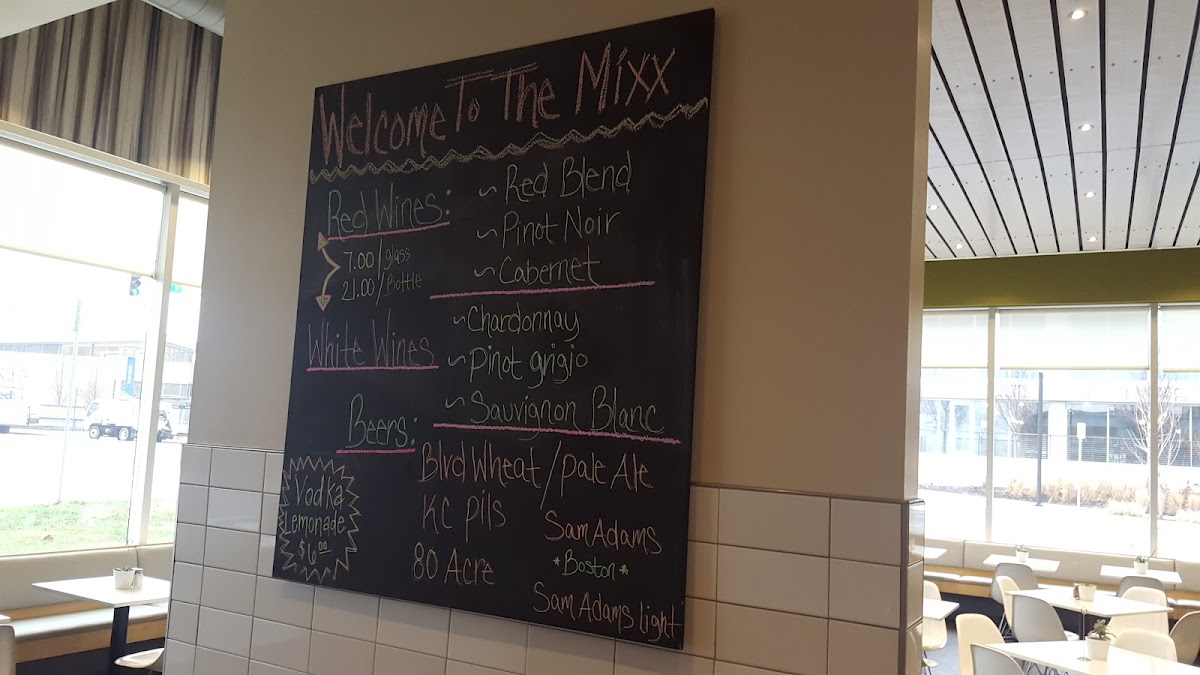 Welcome To The Mixx
Red Wines:
7.00/glass
21.00/Bottle
~ Red Blend
~ Pinot Noir
~ Cabernet
White Wines
~Chardonnay
~Pinot grigio
~ Sauvignon Blanc
Beers:
Blvd Wheat/pale Ale
KC pils
80 Acre
Sam Adams
*Boston*
Sam Adams Light
Vodka
Lemonade
$6.00